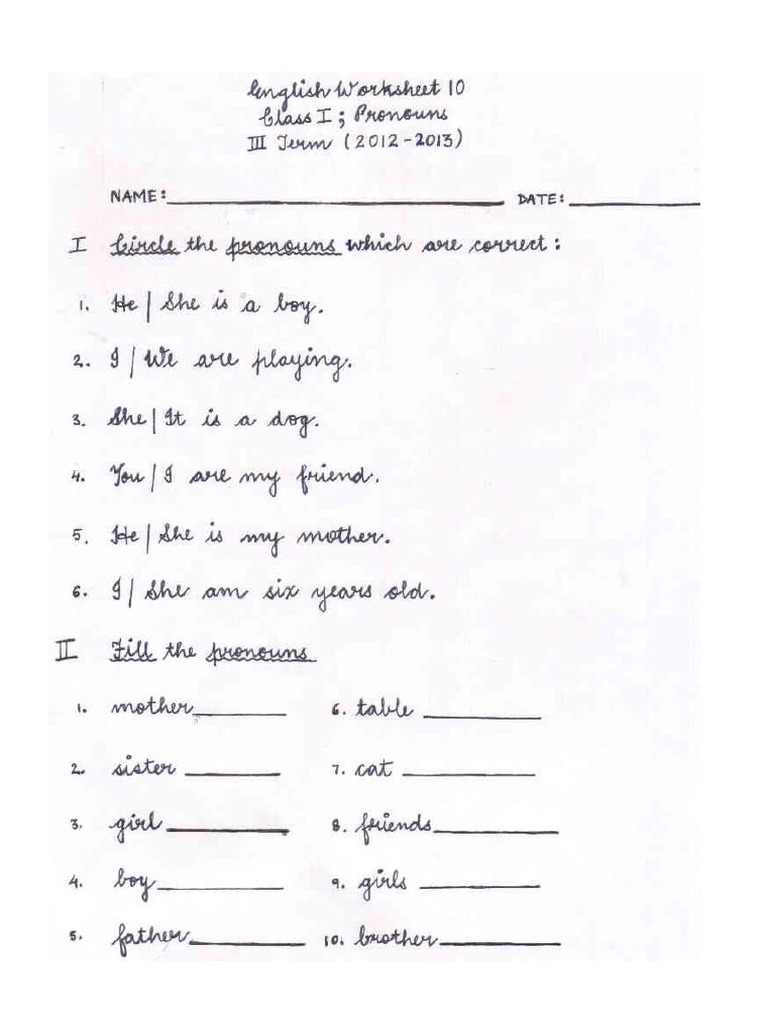 English Worksheet 10
Class I; Pronouns
III Term (2012-2013)
NAME: DATE:
I Circle the pronouns which are correct:
1. He | She is a boy.
2. I | We are playing.
3. She | It is a dog.
4. You | I are my friend.
5. He | She is my mother.
6. I | She am six years old.
II Fill the pronouns
1. mother 6. table
2. sister 7. cat
3. girl 8. friends
4. boy 9. girls
5. father 10. brother